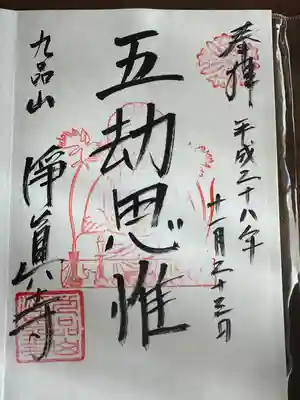 奉拝 平成二十八年
十一月二十三日
五劫思惟
九品山
淨真寺